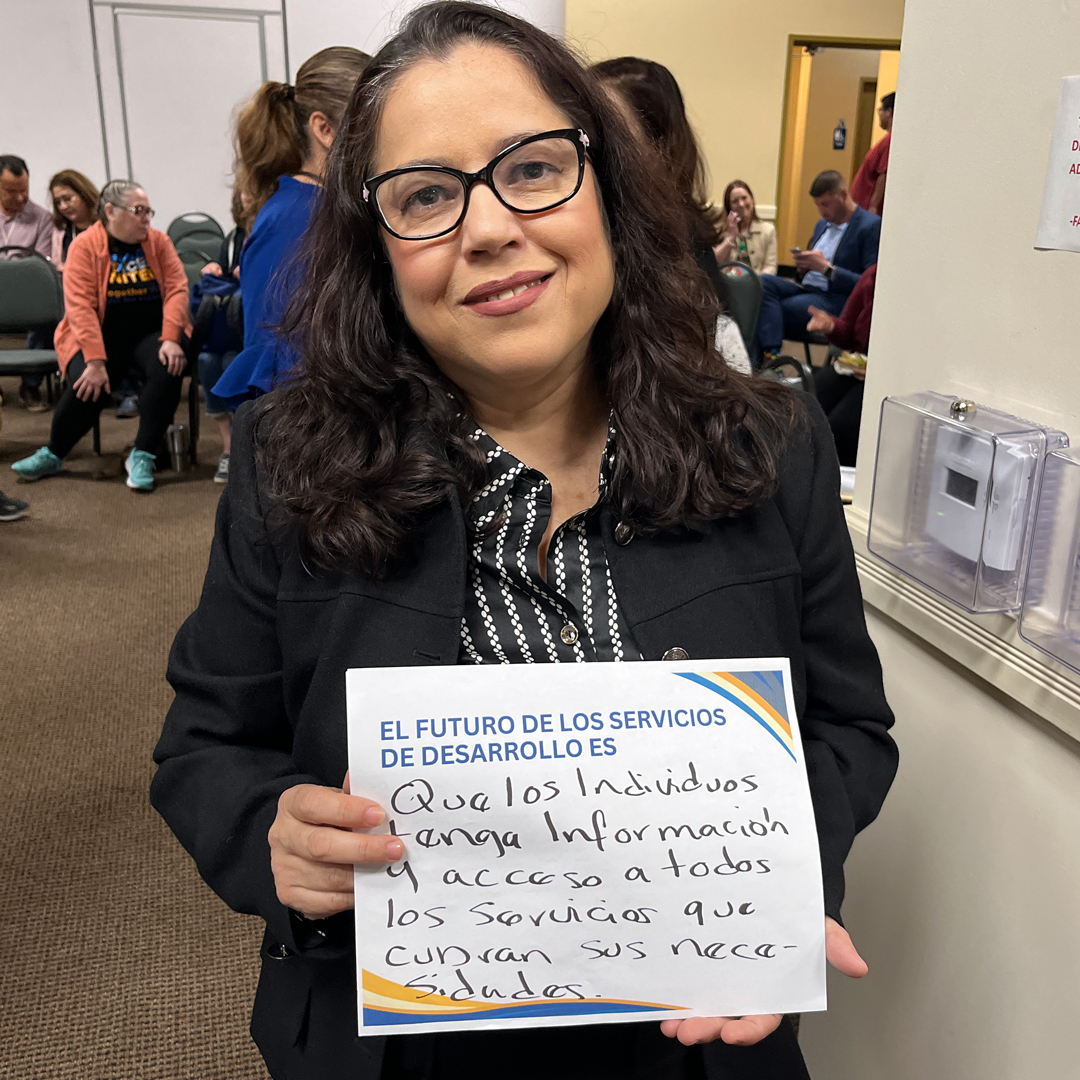 EL FUTURO DE LOS SERVICIOS
DE DESARROLLO ES
Que los Individuos
tenga Información
y acceso a todos
los Servicios que
cubran sus nece-
sidades.
UNITE
Together
D
AD
-FA